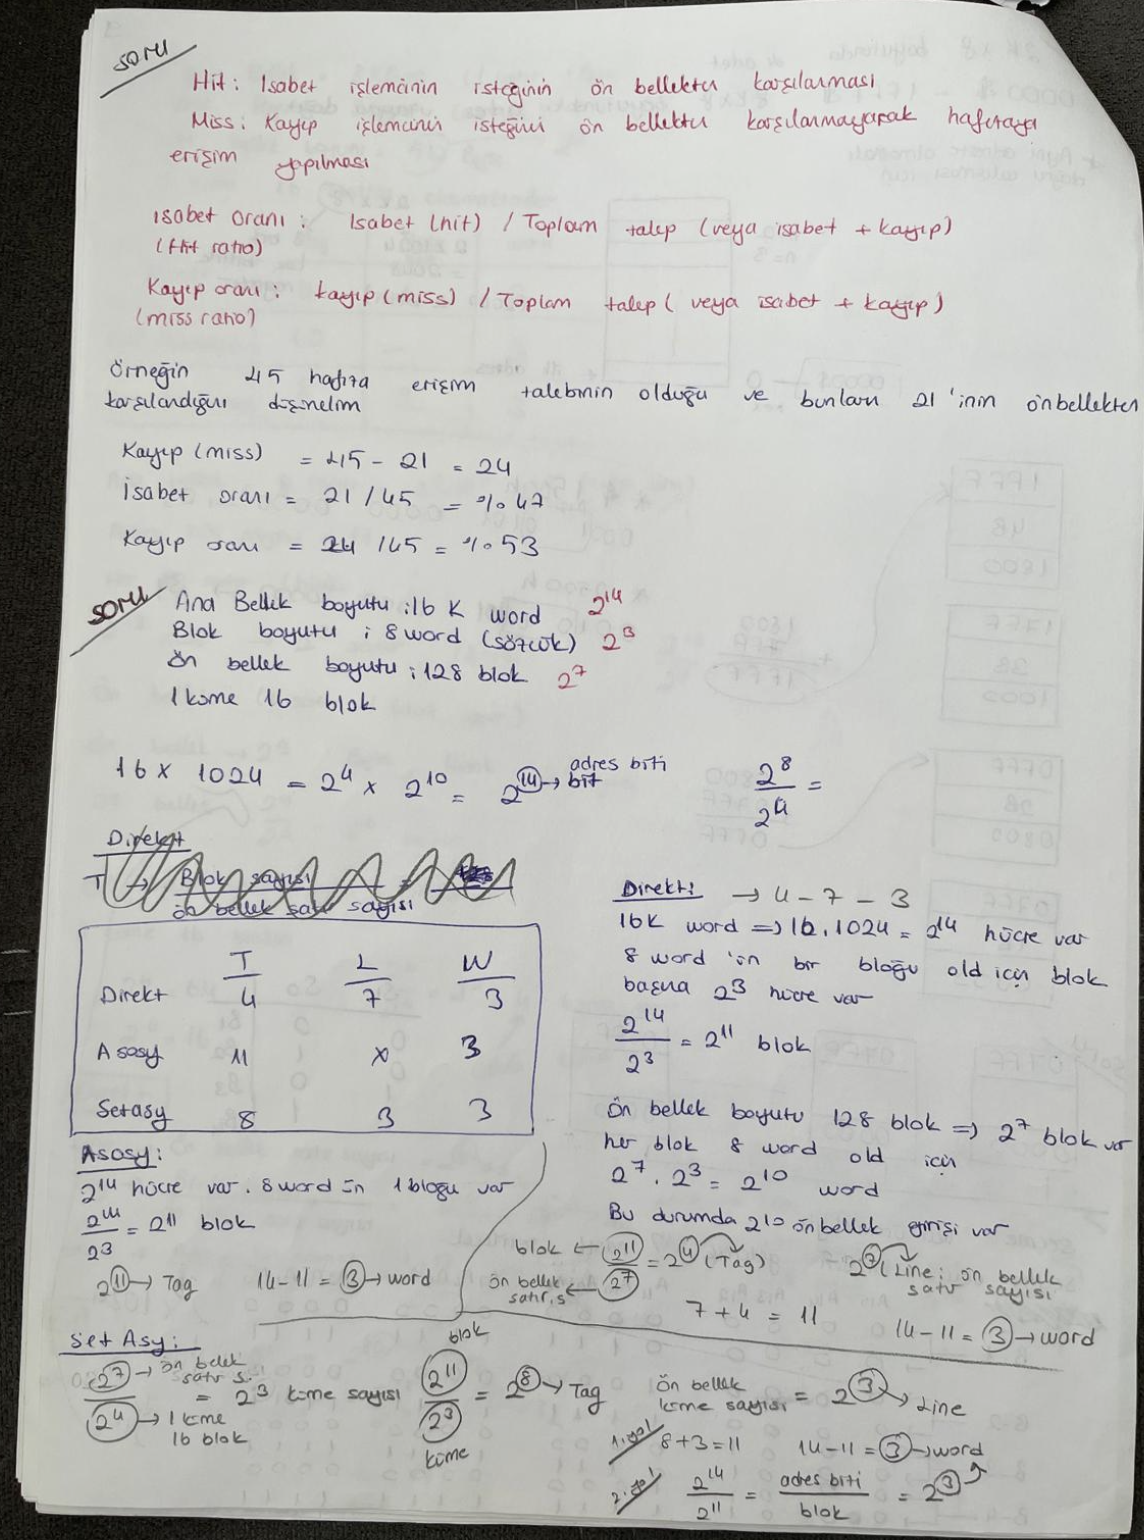 soru
Hit: Isabet işlemcinin isteğinin ön bellekten karşılanması
Miss: Kayıp işlemcinin isteğini ön bellekten karşılanmayarak hafızaya
erişim yapılması
isabet oranı : Isabet (hit) / Toplam talep (veya isabet + kayıp)
(Hit ratio)
Kayıp oranı : kayıp (miss) / Toplam talep ( veya isabet + kayıp)
(miss ratio)
Örneğin 45 hafıza erişim talebinin olduğu ve bunların 21 'inin önbellekten
karşılandığını düşünelim
Kayıp (miss) = 45 - 21 = 24
isabet oranı = 21 / 45 = %47
Kayıp oranı = 24 / 45 = %53
soru
Ana Bellek boyutu : 16 K word 2^14
Blok boyutu : 8 word (sözcük) 2^3
Ön bellek boyutu : 128 blok 2^7
1 küme 16 blok
16 x 1024 = 2^4 x 2^10 = 2^14 → adres biti bit
2^8 / 2^4 =
Direkt
T → Blok sayısı =
ön bellek satır sayısı
T L W
Direkt 4 7 3
Asosy 11 x 3
Setasy 8 3 3
Direkt: → 4 - 7 - 3
16K word => 16.1024 = 2^14 hücre var
8 word 'ün bir bloğu old için blok
başına 2^3 hücre var
2^14 / 2^3 = 2^11 blok
Ön bellek boyutu 128 blok => 2^7 blok var
her blok 8 word old için
2^7 . 2^3 = 2^10 word
Bu durumda 2^10 önbellek girişi var
blok ← 2^11 / 2^7 = 2^4 (Tag)
ön bellek satır s. ←
2^7 (Line: ön bellek
satır sayısı
7 + 4 = 11
14 - 11 = 3 → word
Asosy:
2^14 hücre var. 8 word ün 1 bloğu var
2^14 / 2^3 = 2^11 blok
2^11 → Tag 14 - 11 = 3 → word
Set Asy:
2^7 → ön bellek satır s.
2^4 → 1 küme 16 blok
= 2^3 küme sayısı
blok
2^11 / 2^3 = 2^8 → Tag
küme
Ön bellek
küme sayısı = 2^3 → Line
1.yol 8 + 3 = 11 14 - 11 = 3 → word
2.yol 2^14 / 2^11 = adres biti / blok = 2^3